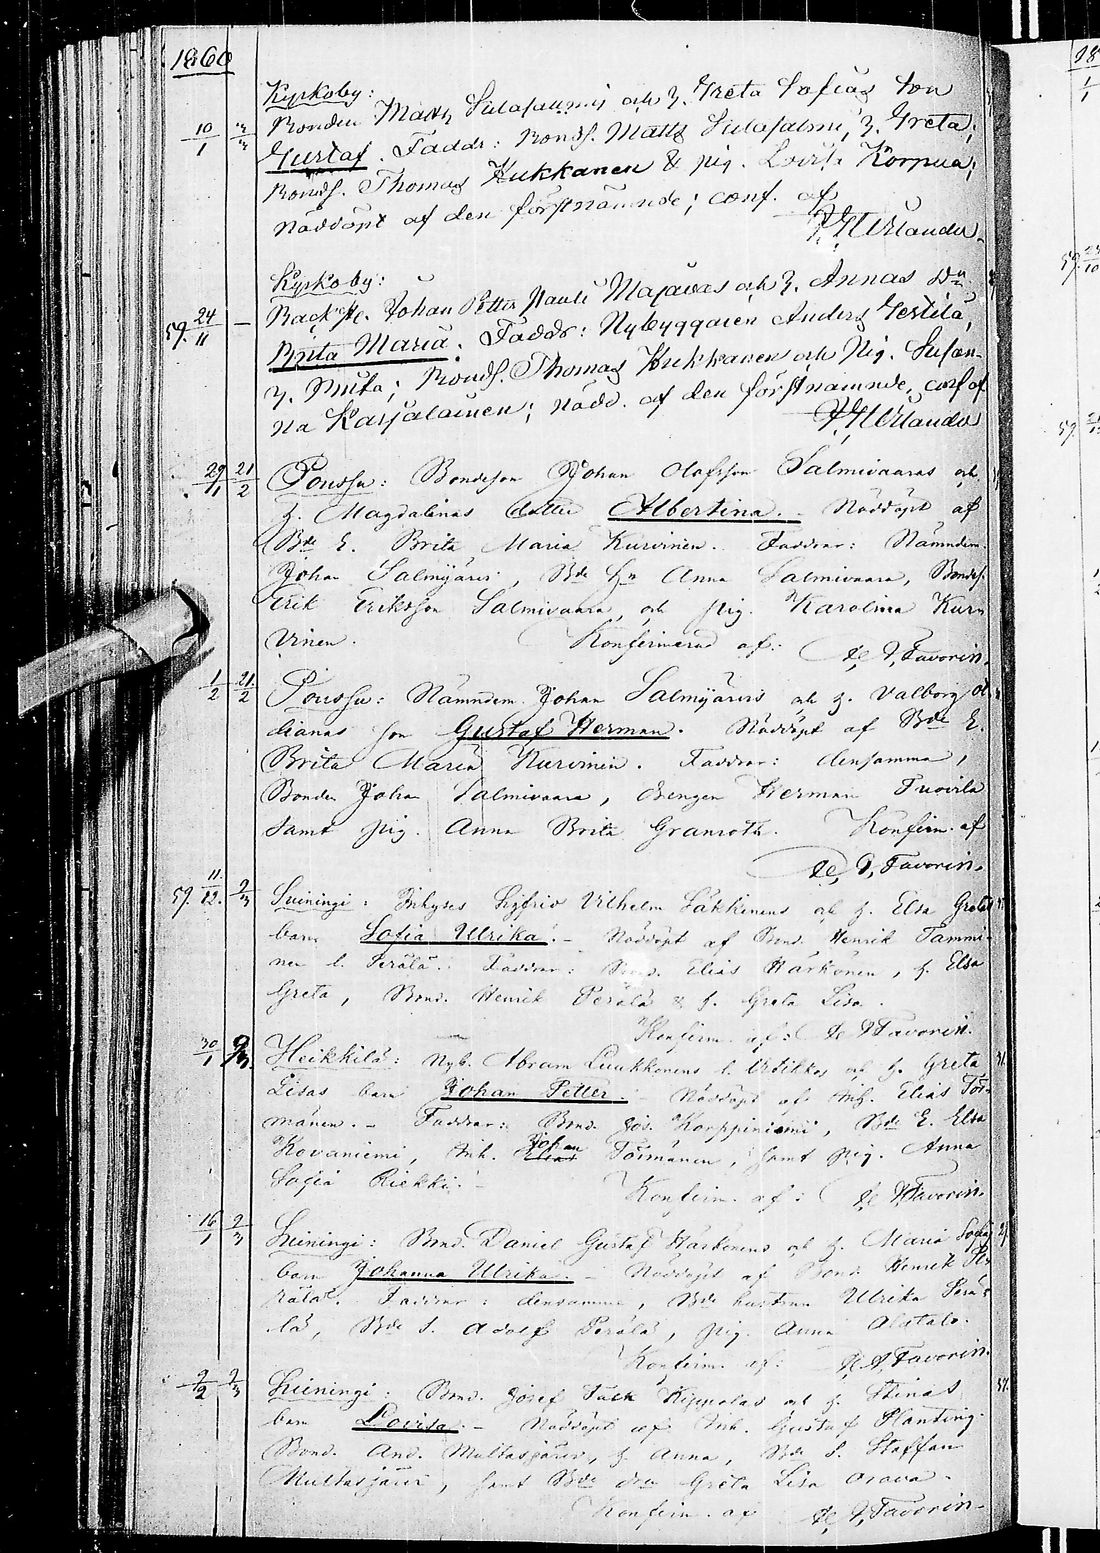 1860
Kyrkoby:
10/1 Bonden Matts Sulasalmis och h. Greta Sofias son
Gustaf. Faddr: Bonds. Matts Sulasalmi, h. Greta;
Bonds. Thomas Kukkanen & pig. Lovisa Korpua;
nöddöpt af den förstnämnde; conf. af
Kyrkoby:
59. 24/11 — Backst. Johan Petter Pauli Majavas och h. Annas Dr
Brita Maria. Faddr: Nybyggaren Anders
h. Brita; Bonds. Thomas Kukkanen och Pig. Susan-
na Karjalainen; nödd. af den förstnämnde, conf af
29/1 21/2 Poussu: Bondeson Johan Olofsson Salmivaaras och
h. Magdalenas dotter Albertina. - Nöddöpt af
Bde E. Brita Maria Kurvinen. Faddrar: Nämndem.
Johan Salmijärvi, Bde hu Anna Salmivaara, Bondes.
Erik Eriksson Salmivaara, och pig. Karolina Kur-
vinen. Konfirmerad af: Favorin.
1/2 21/2 Poussu: Nämndem. Johan Salmijärvis och h. Valborg
dianas son Gustaf Herman. Nöddöpt af Bde E.
Brita Maria Kurvinen. Faddrar: densamma,
Bonden Johan Salmivaara, drengen Herman Tuovila
samt pig. Anna Brita Granroth. Konfirm. af
Favorin.
59. 11/12. 2/3 Suiningi: Inhyses Sigfrid Vilhelm Säkkinens och h. Elsa Gretas
barn Sofia Ulrika. - Nöddöpt af Bond. Henrik Tammi-
nen l. Perälä. Faddrar: Bond. Elias Härkönen, h. Elsa
Greta, Bond. Henrik Perälä & h. Greta Lisa.
Konfirm. af: Favorin.
30/1 Heikkilä: Nyb. Abram Luukkonens l. och h. Greta
Lisas barn Johan Petter. - Nöddöpt af Inh. Elias Tör-
mänen. - Faddrar: Bond. Jos. Korppiniemi, Bde E. Elsa
Kovaniemi, Inh. Johan Törmänen, samt pig. Anna
Sofia Riekki. - Konfirm. af: Favorin.
16/1 2/3 Suiningi: Bond. Daniel Gustaf Härkönens och h. Maria Sofias
barn Johanna Ulrika. - Nöddöpt af Bond. Henrik Pe-
rälä. Faddrar: densamme, Bde hustrun Ulrika Perä-
lä, Bde S. Adolf Perälä, pig. Anna Alatalo.
Konfirm. af: Favorin.
2/2 2/3 Suiningi: Bond. Josef Kippolas och h. Stinas
barn Lovisa. - Nöddöpt af Inh. Gustaf Planting.
Bond. And. Multasjärvi, h. Anna, Bde S. Staffan
Multasjärvi, samt Bde dr Greta Lisa Orava.
Konfirm. af Favorin.